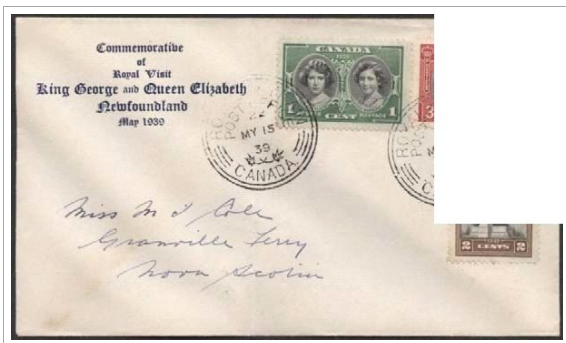 Commemorative
of
Royal Visit
King George and Queen Elizabeth
Newfoundland
May 1939
CANADA
1939
1 1
CENT POSTAGE
3
MY 15
39
CANADA
Miss M I Cole
Granville Ferry
Nova Scotia
2 CENTS 2